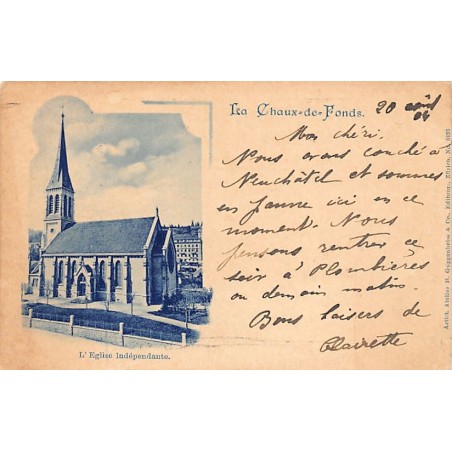 La Chaux-de-Fonds.
20 août
04
Mon chéri.
Nous avons couché à
Neuchâtel et sommes
en panne ici en ce
moment. Nous
pensons rentrer ce
soir à Plombières
ou demain matin.
Bons baisers de
Clairette
L'Eglise Indépendante.
Artist. Atelier H. Guggenheim & Co., Editeurs, Zürich, No.